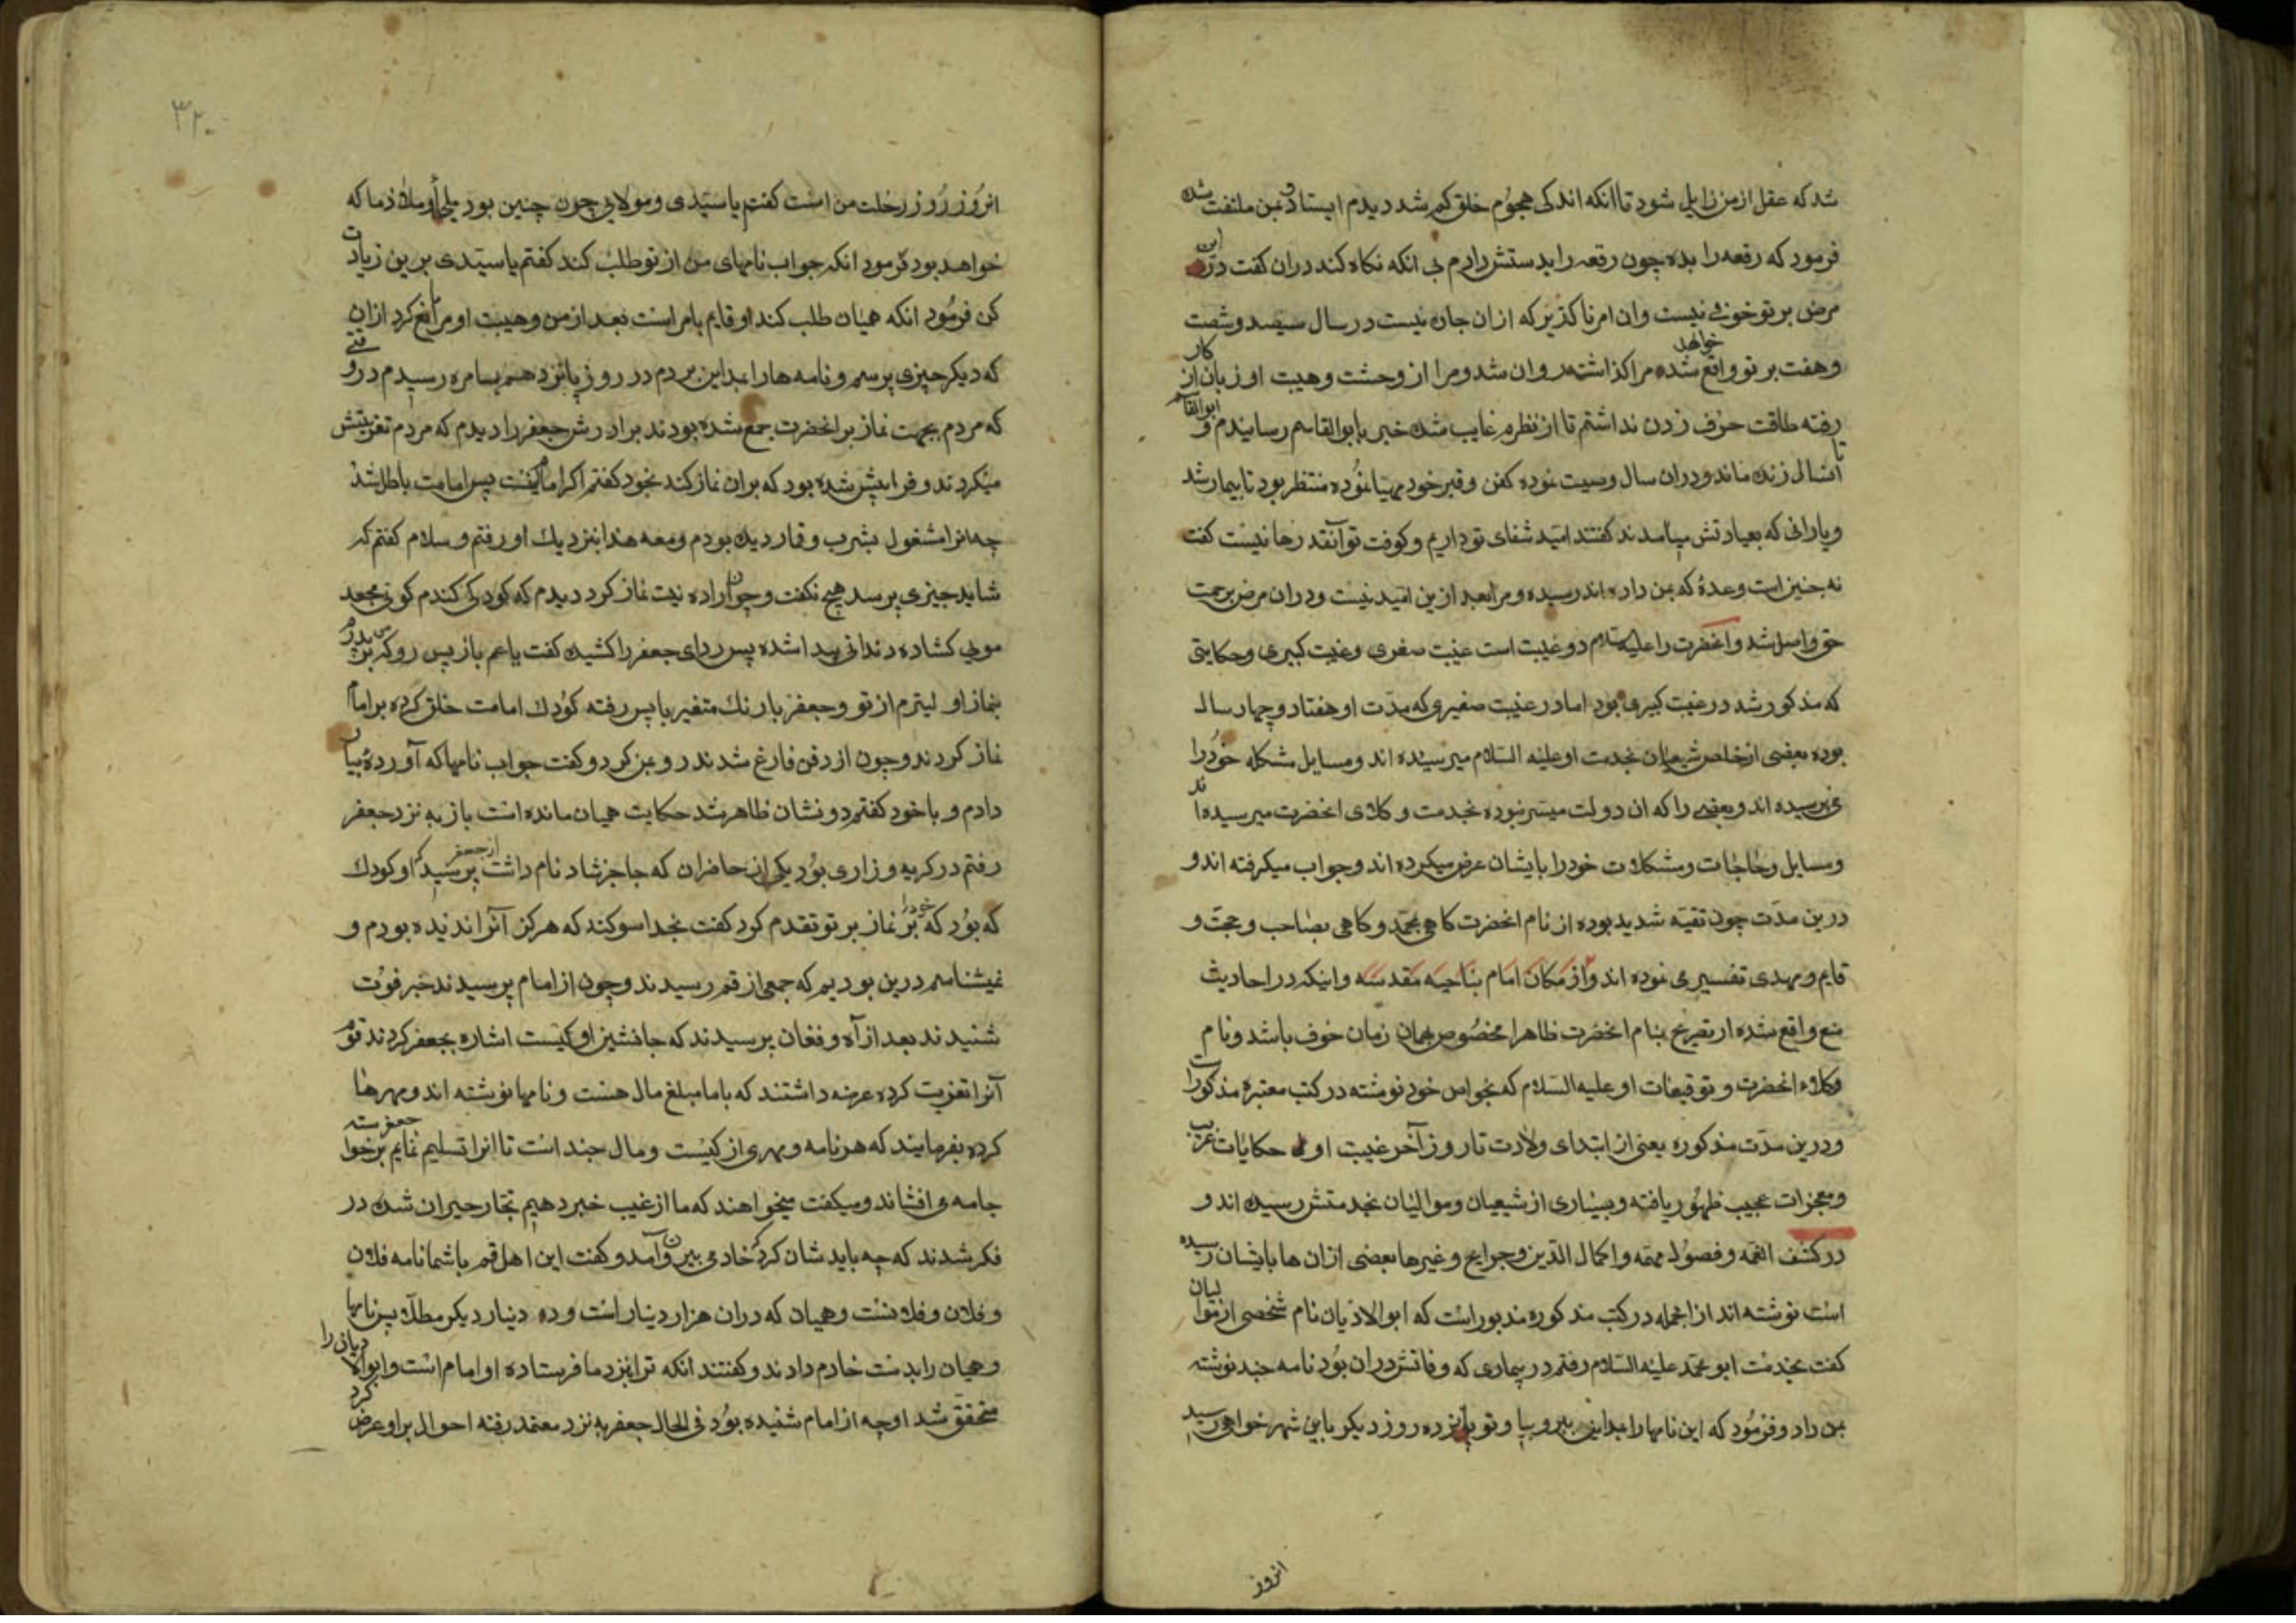 شد که عقل از من زایل شود تا آنکه اندکی هجوم خلق کم شد دیدم ایستاد و بمن ملتفت شده
فرمود که رقعه را بده چون رقعه را بدستش دادم بی آنکه نکاه کند دران کفت درین
مرض بر تو خوفی نیست وان امر ناکذیر که ازان چاره نیست در سال سیصد و شصت
وهفت بر تو واقع خواهد شد مرا کذاشته روان شد و مرا از وحشت وهیبت او زبان از کار
رفته طاقت حرف زدن نداشتم تا از نظرم غایب شد خبر بابوالقاسم رسانیدم و ابوالقاسم
تا آنسال زنده ماند ودران سال وصیت نموده کفن وقبر خود مهیا نموده منتظر بود تا بیمار شد
ویارانی که بعیادتش میآمدند کفتند امید شفای تو داریم وکوفت تو آنقدرها نیست کفت
نه چنین است وعدهٔ که بمن داده اند رسیده ومرا بعد ازین امید نیست ودران مرض برحمت
حق واصل شد وانحضرت را علیه السلام دو غیبت است غیبت صغری وغیبت کبری وحکایتی
که مذکور شد در غیبت کبری بود اما در غیبت صغری که مدت او هفتاد وچهار سال
بوده بعضی از خاصه شیعیان بخدمت او علیه السلام میرسیده اند ومسایل مشکله خود را
می پرسیده اند وبعضی را که ان دولت میسر نبوده بخدمت وکلای انحضرت میرسیده اند
ومسایل وحاجات ومشکلات خود را بایشان عرض میکرده اند وجواب میکرفته اند و
درین مدت چون تقیه شدید بوده از نام انحضرت کاهی بمحمد وکاهی بصاحب وحجت و
قایم ومهدی تفسیر می نموده اند واز مکان امام بناحیه مقدسه واینکه در احادیث
منع واقع شده از تصریح بنام انحضرت ظاهرا مخصوص همان زمان خوف باشد ونام
وکلاء انحضرت وتوقیعات او علیه السلام که بخواص خود نوشته در کتب معتبره مذکور است
ودرین مدت مذکوره یعنی از ابتدای ولادت تا روز آخر غیبت اولی حکایات غریب
ومعجزات عجیب ظهور یافته وبسیاری از شیعیان وموالیان بخدمتش رسیده اند و
در کشف الغمه وفصول مهمه واکمال الدین وجرایح وغیرها بعضی ازان ها بایشان رسیده
است نوشته اند ازانجمله در کتب مذکوره مذبور است که ابوالادیان نام شخصی از موالیان
کفت بخدمت ابو محمد علیه السلام رفتم در بیماری که وفاتش دران بود نامه چند نوشته
بمن داد وفرمود که این نامها را بمداین ببر وبیا وتو پانزده روز دیکر باین شهر خواهی رسید
انروز
۳۲۰
انروز روز رحلت من است کفتم یا سیدی ومولایی چون چنین بود ملجأ وملاذ ما که
خواهد بود فرمود انکه جواب نامهای من از تو طلب کند کفتم یا سیدی برین زیادت
کن فرمود انکه همیان طلب کند او قایم بامر است بعد از من وهیبت او مرا مانع کرد ازان
که دیکر چیزی پرسم ونامه ها را بمداین بردم در روز پانزدهم بسامره رسیدم در وقتی
که مردم بجهت نماز بر انحضرت جمع شده بودند برادرش جعفر را دیدم که مردم تعزیتش
میکردند وفرا پیش شده بود که بران نماز کند بخود کفتم اکر امام اینست پس امامت باطل شد
چه انرا مشغول بشرب وقمار دیده بودم ومعه هذا بنزدیک او رفتم وسلام کفتم که
شاید چیزی پرسد هیچ نکفت وچون اراده نیت نماز کرد دیدم که کودکی کندم کون مجعد
مویی کشاده دندانی پیدا شده پس ردای جعفر را کشیده کفت یا عم باز پس رو که من بر پدرم
بنماز او لیترم از تو وجعفر با رنک متغیر باپس رفته کودک امامت خلق کرده بر امام
نماز کردند وچون از دفن فارغ شدند رو بمن کرد وکفت جواب نامها که آوردهٔ بیار
دادم وبا خود کفتم دو نشان ظاهر شد حکایت همیان مانده است باز به نزد جعفر
رفتم در کریه وزاری بود یکی از حاضران که حاجز شاد نام داشت از جعفر پرسید که او کودک
که بود که خود را بر نماز بر تو تقدم کرد کفت بخدا سوکند که هرکز آنرا ندیده بودم و
نمیشناسم درین بودیم که جمعی از قم رسیدند وچون از امام پرسیدند خبر فوت
شنیدند بعد از آه وفغان پرسیدند که جانشین او کیست اشاره بجعفر کردند قوم
آنرا تعزیت کرده عرضه داشتند که باما مبلغ مال هست ونامها نوشته اند ومهرها
کرده بفرمایند که هر نامه ومهری از کیست ومال چند است تا انرا تسلیم نمایم جعفر برخواسته
جامه می افشاند ومیکفت میخواهند که ما از غیب خبر دهیم تجار حیران شده در
فکر شدند که چه باید شان کرد که خادمی بیرون آمد وکفت این اهل قم باشما نامه فلان
وفلان وفلانست وهمیان که دران هزار دینار است وده دینار دیکر مطلا پس نامها
وهمیان را بدست خادم دادند وکفتند انکه ترا نزد ما فرستاده او امام است وابوالادیان را
متحقق شد اوچه از امام شنیده بود فی الحال جعفر به نزد معتمد رفته احوال براو عرض کرد